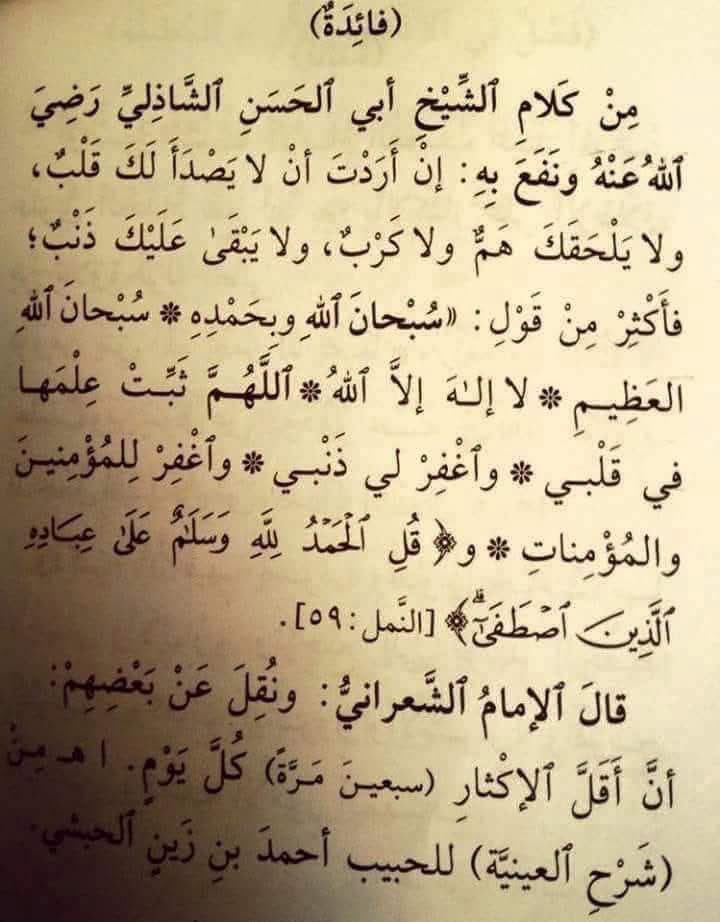 (فائِدَةٌ)
مِنْ كَلامِ ٱلشَّيْخِ أبي ٱلحَسَنِ ٱلشَّاذِليِّ رَضِيَ
ٱللهُ عَنْهُ ونَفَعَ بِهِ: إنْ أَرَدْتَ أنْ لا يَصْدَأَ لَكَ قَلْبٌ،
ولا يَلْحَقَكَ هَمٌّ ولا كَرْبٌ، ولا يَبْقَىٰ عَلَيْكَ ذَنْبٌ؛
فأَكْثِرْ مِنْ قَوْلِ: «سُبْحانَ ٱللهِ وبِحَمْدِهِ * سُبْحانَ ٱللهِ
العَظِيمِ * لا إلـٰهَ إلاَّ ٱللهُ * ٱللَّهُمَّ ثَبِّتْ عِلْمَها
في قَلْبـي * وٱغْفِرْ لي ذَنْبـي * وٱغْفِرْ لِلمُؤْمِنيـنَ
والمُؤْمِناتِ * و﴿قُلِ ٱلْحَمْدُ لِلَّهِ وَسَلَٰمٌ عَلَىٰ عِبَادِهِ
ٱلَّذِينَ ٱصْطَفَىٰٓۗ﴾ [النَّمل: ٥٩].
قالَ ٱلإمامُ ٱلشَّعرانيُّ: ونُقِلَ عَنْ بَعْضِهِمْ:
أنَّ أَقَلَّ ٱلإكْثارِ (سبعيـنَ مَـرَّةً) كُلَّ يَوْمٍ. اهـ مِنْ
(شَرْحِ ٱلعينيَّة) للحبيب أحمدَ بنِ زَينٍ ٱلحبشي.